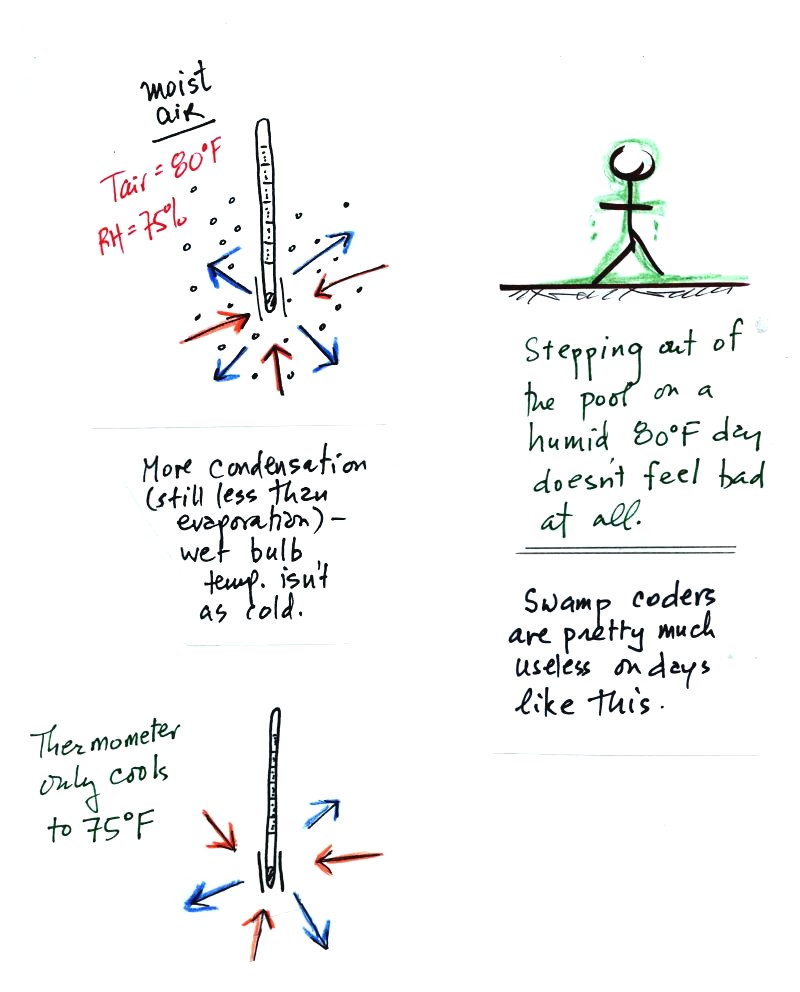 moist
air
Tair = 80°F
RH = 75%
More condensation
(still less than
evaporation) –
wet bulb
temp. isn't
as cold.
Thermometer
only cools
to 75°F
Stepping out of
the pool on a
humid 80°F day
doesn't feel bad
at all.
Swamp coolers
are pretty much
useless on days
like this.